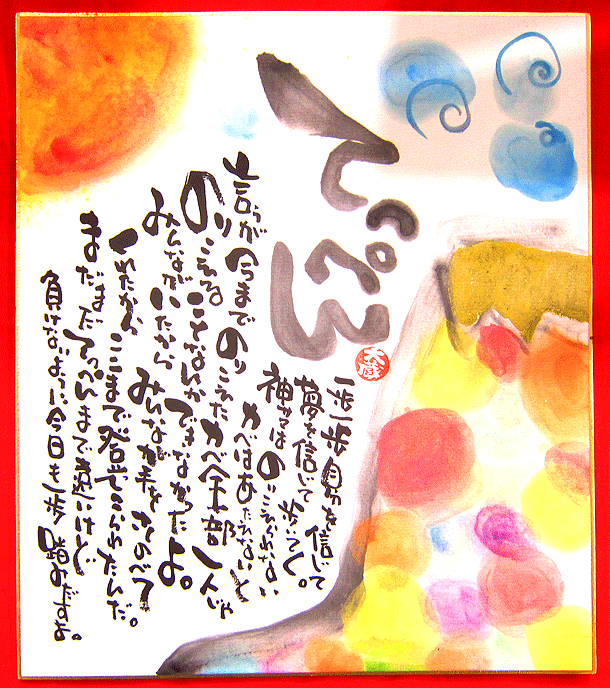 てっぺん
一歩一歩自分を信じて
夢を信じて歩いてく。
神サマはのりこえられない
カベはあたえないと
言うが今までのりこえたカベ全部一人じゃ
のりこえることなんかできなかったよ。
みんながいたから みんなが手をさしのべて
くれたから ここまで登ってこられたんだ。
まだまだてっぺんまで遠いけど
負けないように今日も一歩踏みだすよ。